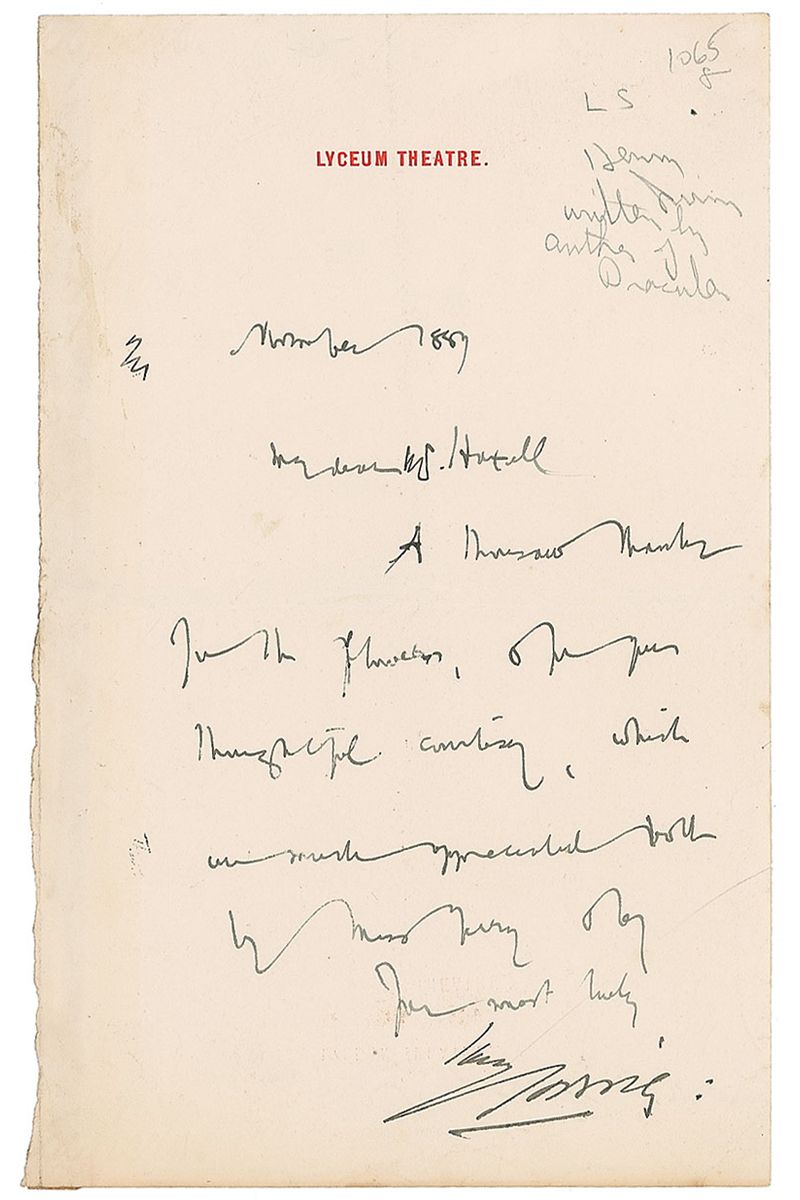 1065
8
L S
Henry
Irving
written by
author of
Dracula
LYCEUM THEATRE.
November 1889
My dear Mr. Hoxell
A thousand thanks
for the flowers, & for your
thoughtful courtesy, which
was much appreciated both
by Miss Terry & by
Yours most truly
Henry Irving